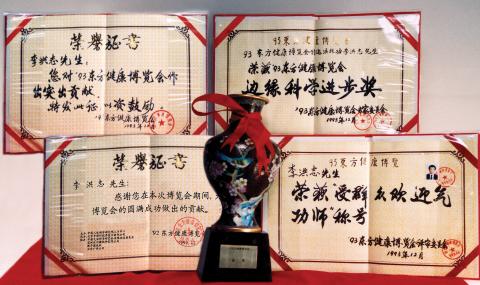 荣誉证书
李洪志先生:
您对'93东方健康博览会作
出突出贡献.
特发此证,以资鼓励。
'93东方健康博览会
1993.12月
93东方健康博览会
李洪志先生:
荣获'93东方健康博览会
边缘科学进步奖
'93东方健康博览会
1993年12月
荣誉证书
李洪志先生:
感谢您在本次博览会期间,
博览会的圆满成功做出的贡献。
'92东方健康博览
93东方健康博览
李洪志先生
荣获“受群众欢迎气
功师”称号
'93东方健康博览会评审委员会
1993.12月